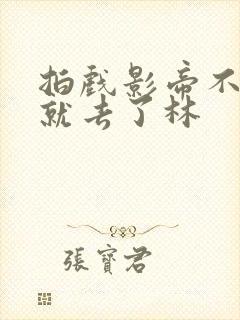 拍戏影帝不
就去了林
張寳君